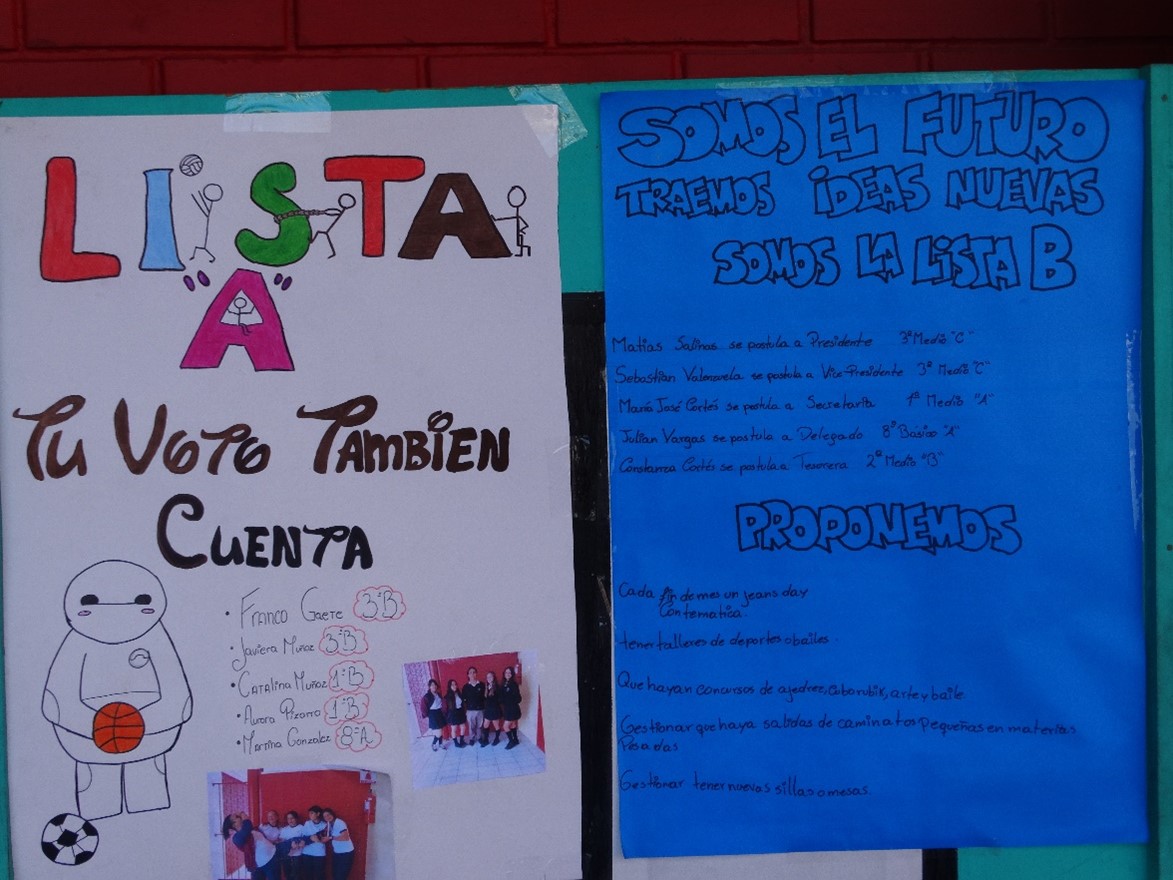 LISTA
"A"
Tu Voto TAMBIEN
CUENTA
• FRANCO GAETE 3ºB
• Javiera Muñoz 3ºB
• CATALINA MUÑOZ 1ºB
• Aurora Pizarro 1ºB
• Martina Gonzalez 8ºA
SOMOS EL FUTURO
TRAEMOS iDEAS NUEVAS
SOMOS LA LiSTA B
Matias Salinas se postula a Presidente 3º Medio "C"
Sebastian Valenzuela se postula a Vice-Presidente 3º Medio "C"
María José Cortés se postula a Secretaria 1º Medio "A"
Julian Vargas se postula a Delegado 8º Básico "A"
Constanza Cortés se postula a Tesorera 2º Medio "B"
PROPONEMOS
Cada fin de mes un jeans day
Con tematica.
tener talleres de deportes o bailes.
Que hayan concursos de ajedrez, cubo rubik, arte y baile.
Gestionar que haya salidas de caminatas pequeñas en materias
Pasadas
Gestionar tener nuevas sillas o mesas.